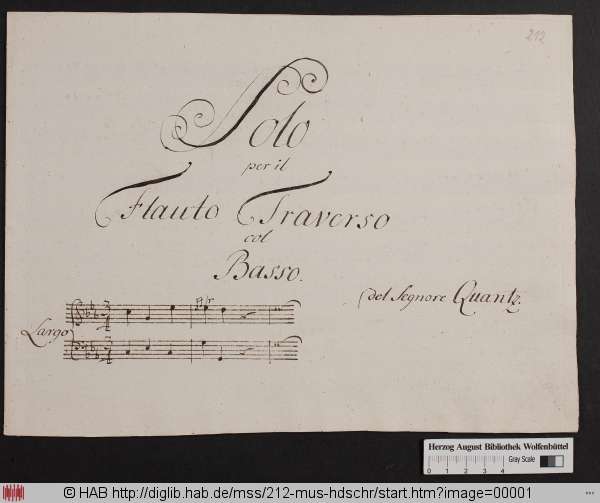 212
Solo
per il
Flauto Traverso
col
Basso.
del Segnore Quantz.
Largo
Herzog August Bibliothek Wolfenbüttel
cm Gray Scale
0 1 2 3 4
© HAB http://diglib.hab.de/mss/212-mus-hdschr/start.htm?image=00001